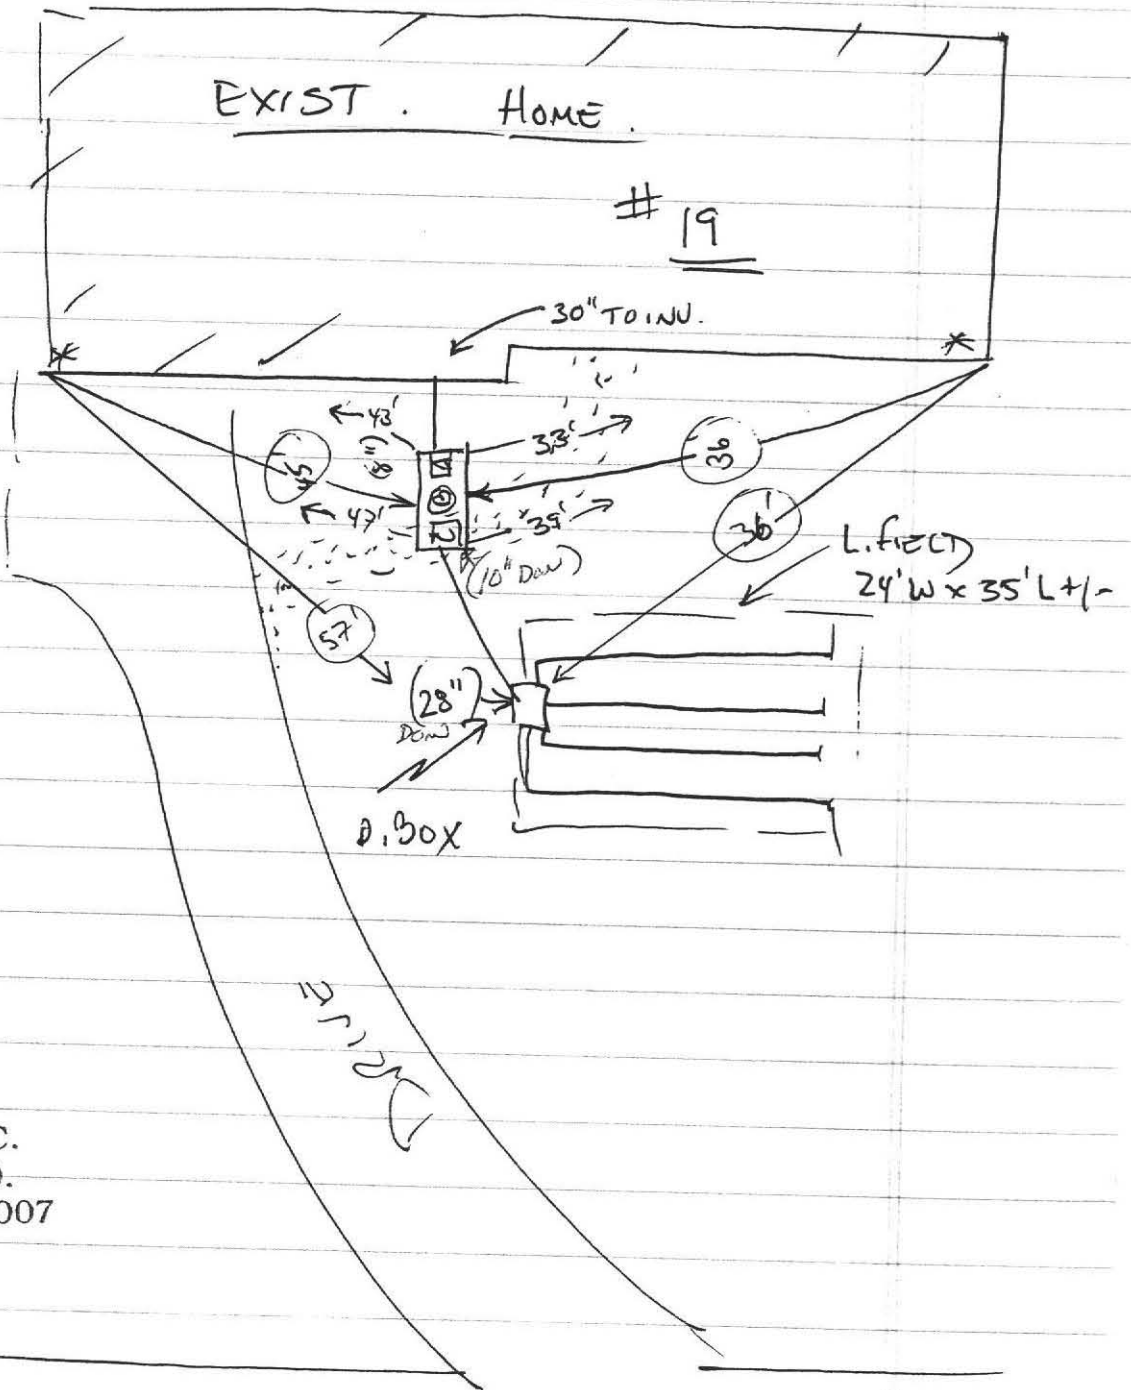 EXIST. HOME.
# 19
30" TO INV.
43'
(8")
33'
45'
36
47'
39'
(10" DOWN)
36'
L. FIELD
24' W x 35' L +/-
57'
(28")
DOWN
D. BOX
Drive
C.
007